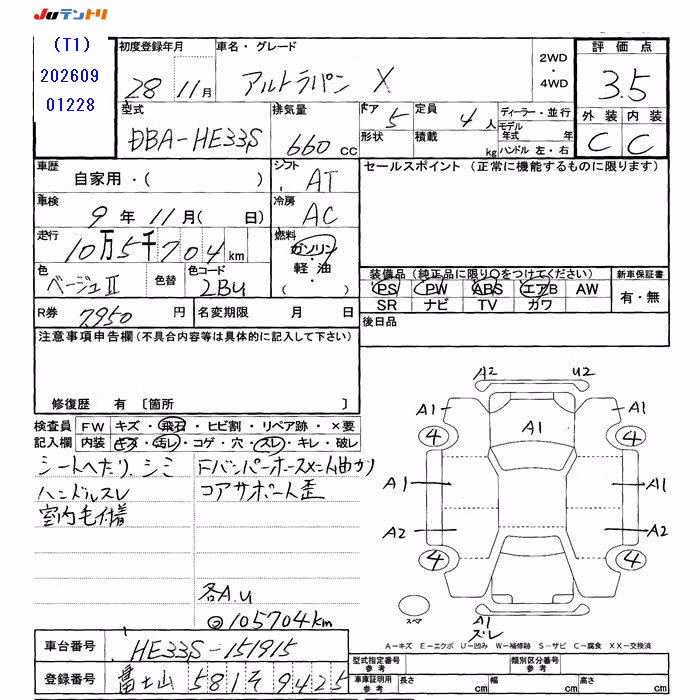 Juテントリ
(T1)
202609
01228
初度登録年月 車名・グレード 評価点
28年 11月 アルトラパン X 2WD・4WD 3.5
型式 排気量 ドア 5 定員 4人 ディーラー・並行 外装 内装
DBA-HE33S 660cc 形状 積載 kg モデル年式 年 ハンドル 左・右 C C
車歴 シフト セールスポイント (正常に機能するものに限ります)
自家用・( ) AT
車検 冷房
9年 11月( 日) AC
走行 燃料
10万5千704km ガソリン・軽油・( )
色 色替 色コード 装備品 (純正品に限り○をつけてください) 新車保証書
ベージュII 2BU PS PW ABS エアB AW 有・無
SR ナビ TV カワ
R券 7950円 名変期限 月 日 後日品
注意事項申告欄 (不具合内容等は具体的に記入して下さい)
修復歴 有 〔箇所 〕
A2 U2
A1 A1 A1
4 4
A1 A1
A2 A2
4 4
スペア A1
ズレ
検査員 FW キズ・飛石・ヒビ割・リペア跡・×要
記入欄 内装 キズ・汚レ・コゲ・穴・スレ・キレ・破レ
シートヘたり、シミ Fバンパーホースメント曲がり
ハンドルスレ コアサポート歪
室内毛付着
各A.U
◎105704km
A-キズ E-エクボ U-凹み W-補修跡 S-サビ C-腐食 XX-交換済
車台番号 HE33S-151915
型式指定番号 参考 類別区分番号 参考
登録番号 富士山 581 そ 9425
車庫証明用 参考 長さ cm 幅 cm 高さ cm